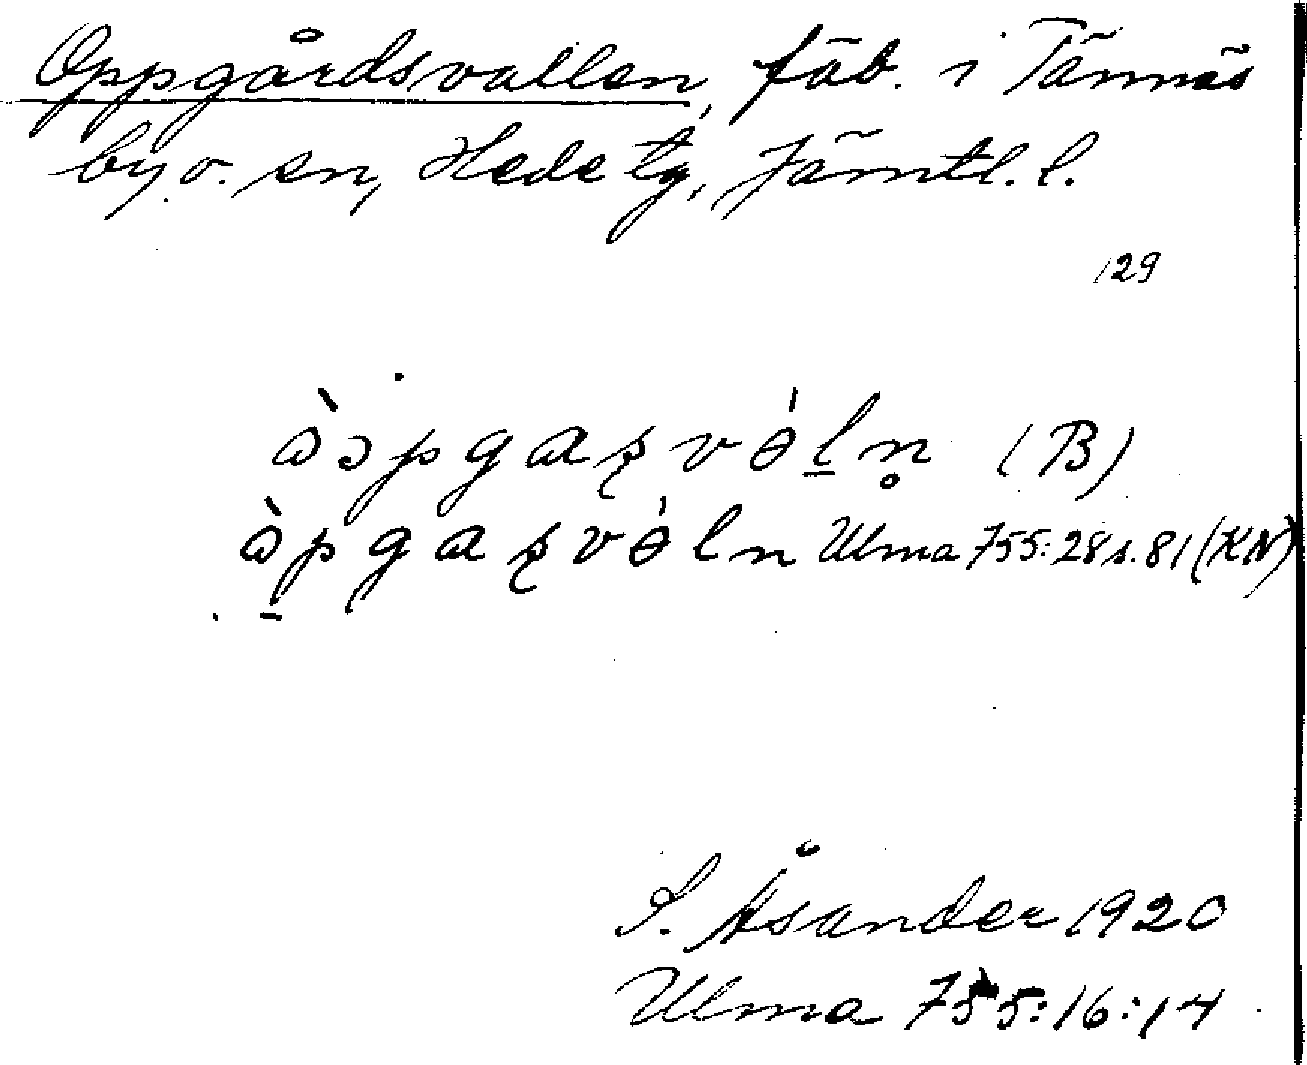 Oppgårdsvallen, fäb. i Tännäs
by o. sn, Hede tg, Jämtl. l.
129
(B)
Ulma 755:28 s. 81 (KN)
S. Åsander 1920
Ulma 755:16:14